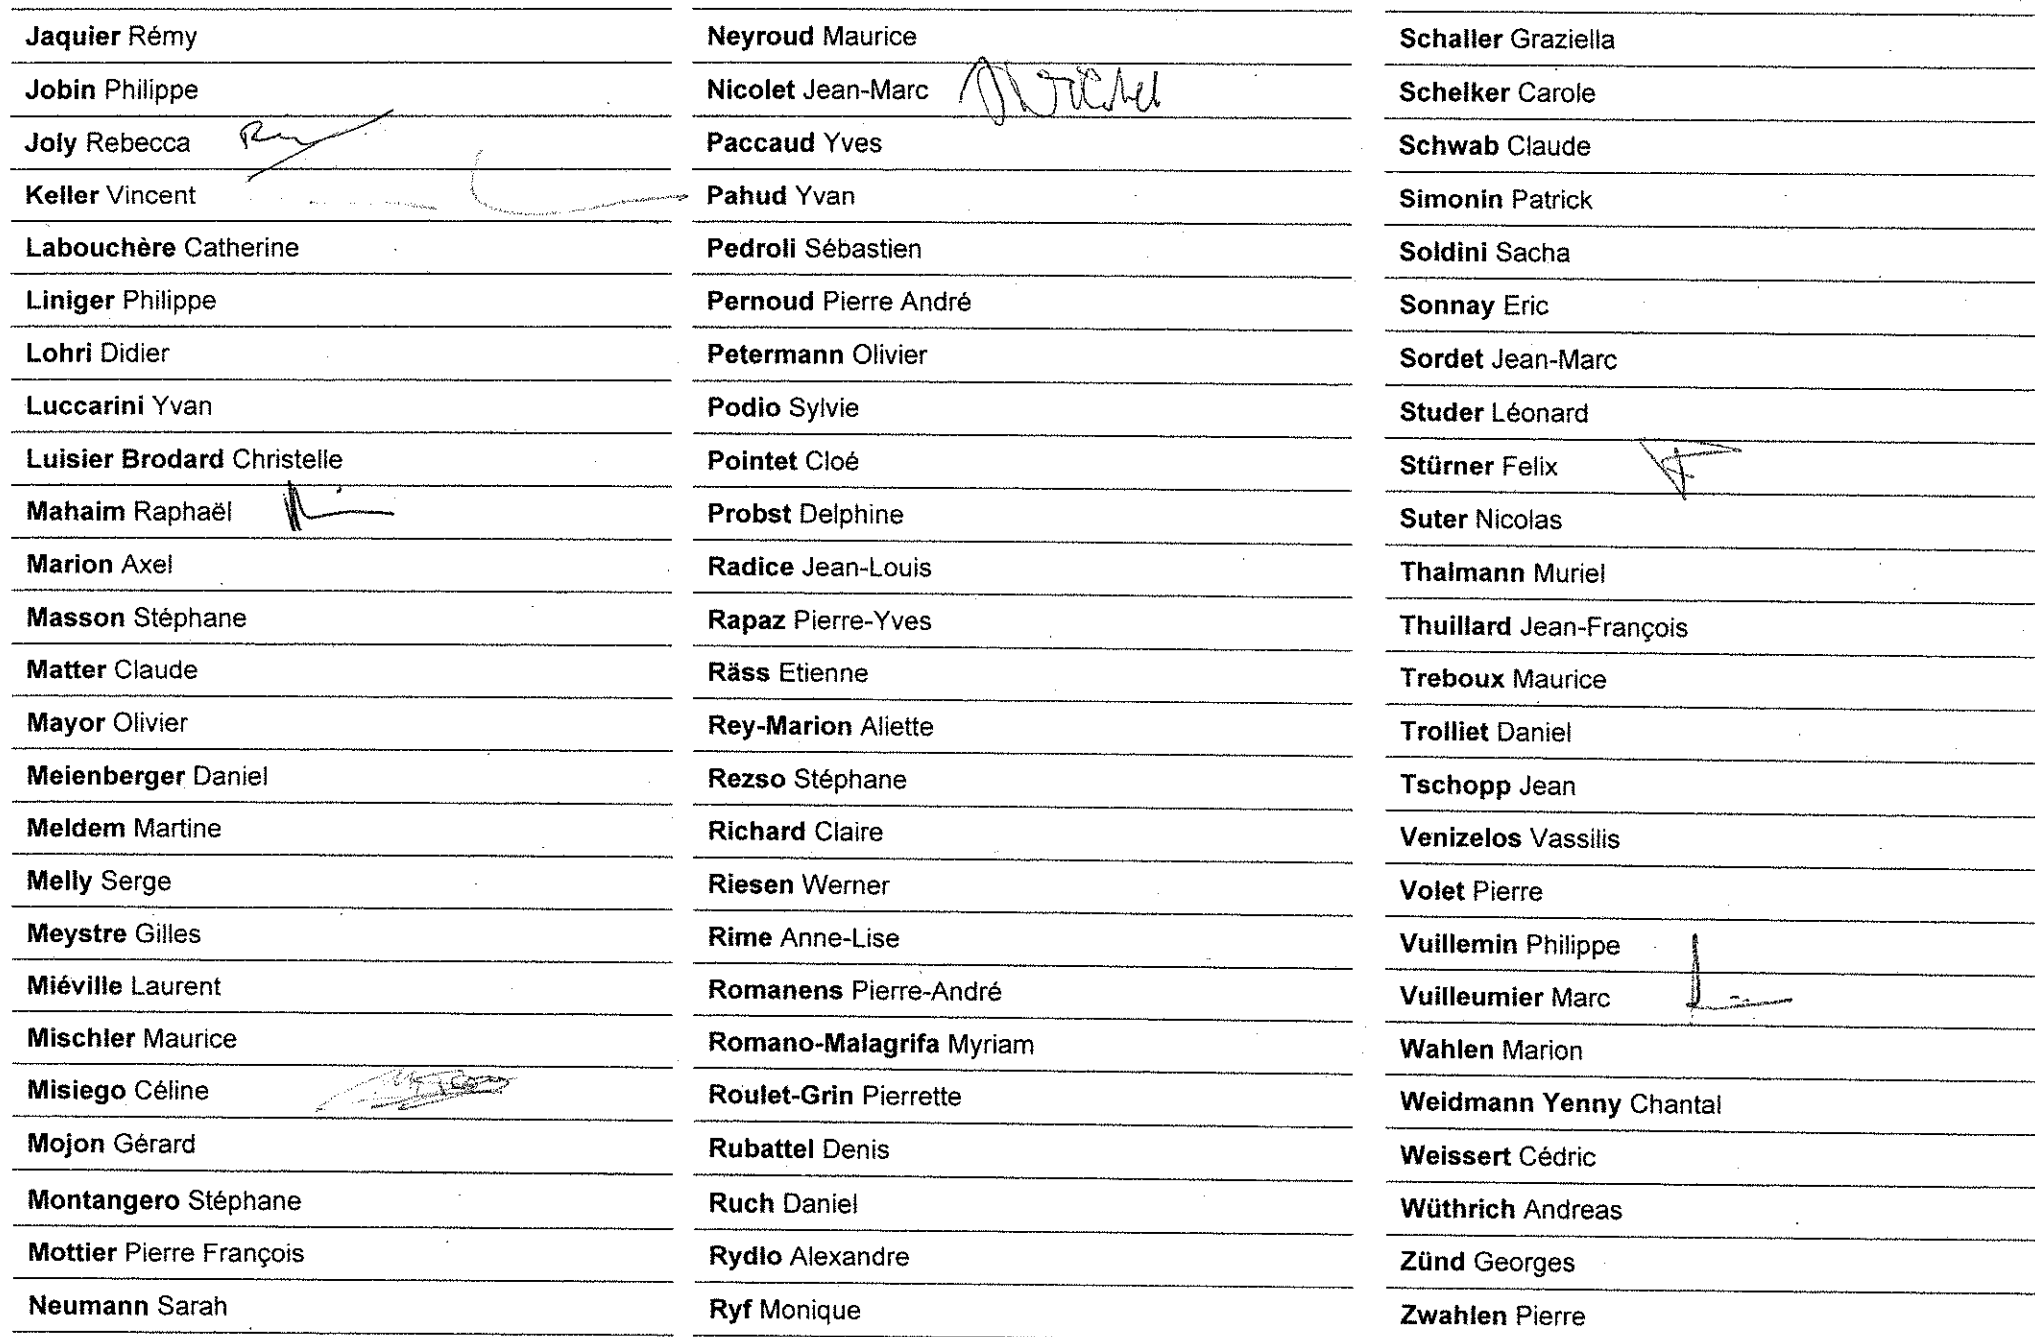 Jaquier Rémy
Jobin Philippe
Joly Rebecca
Keller Vincent
Labouchère Catherine
Liniger Philippe
Lohri Didier
Luccarini Yvan
Luisier Brodard Christelle
Mahaim Raphaël
Marion Axel
Masson Stéphane
Matter Claude
Mayor Olivier
Meienberger Daniel
Meldem Martine
Melly Serge
Meystre Gilles
Miéville Laurent
Mischler Maurice
Misiego Céline
Mojon Gérard
Montangero Stéphane
Mottier Pierre François
Neumann Sarah
Neyroud Maurice
Nicolet Jean-Marc
Paccaud Yves
Pahud Yvan
Pedroli Sébastien
Pernoud Pierre André
Petermann Olivier
Podio Sylvie
Pointet Cloé
Probst Delphine
Radice Jean-Louis
Rapaz Pierre-Yves
Räss Etienne
Rey-Marion Aliette
Rezso Stéphane
Richard Claire
Riesen Werner
Rime Anne-Lise
Romanens Pierre-André
Romano-Malagrifa Myriam
Roulet-Grin Pierrette
Rubattel Denis
Ruch Daniel
Rydlo Alexandre
Ryf Monique
Schaller Graziella
Schelker Carole
Schwab Claude
Simonin Patrick
Soldini Sacha
Sonnay Eric
Sordet Jean-Marc
Studer Léonard
Stürner Felix
Suter Nicolas
Thalmann Muriel
Thuillard Jean-François
Treboux Maurice
Trolliet Daniel
Tschopp Jean
Venizelos Vassilis
Volet Pierre
Vuillemin Philippe
Vuilleumier Marc
Wahlen Marion
Weidmann Yenny Chantal
Weissert Cédric
Wüthrich Andreas
Zünd Georges
Zwahlen Pierre